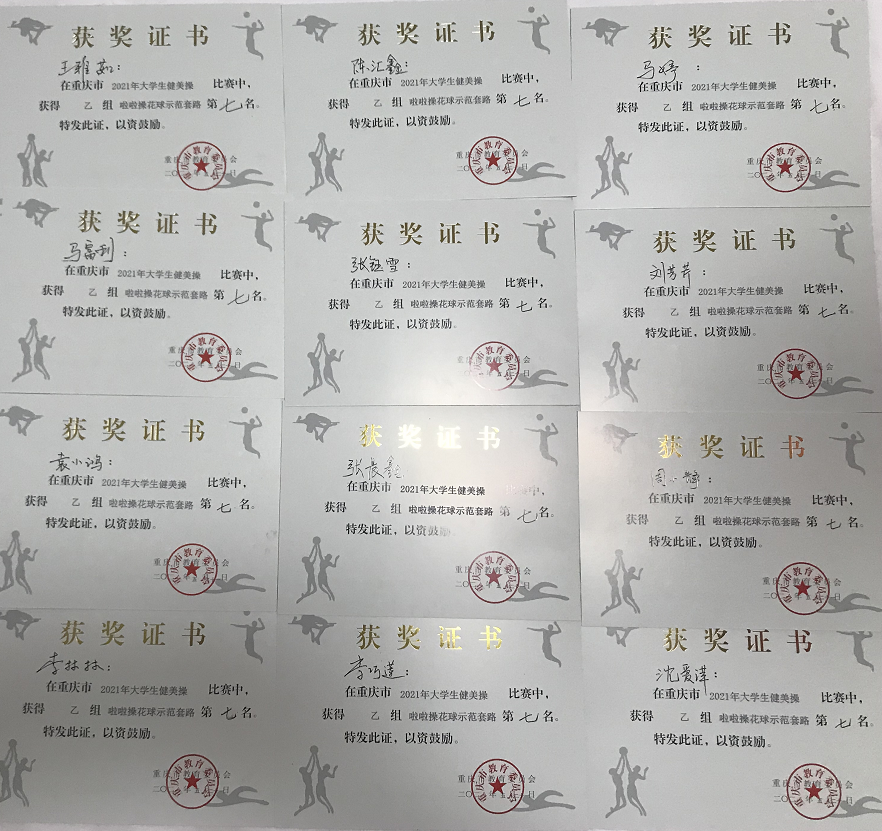 获奖证书
王雅茹：
在重庆市 2021年大学生健美操 比赛中，
获得 乙 组 啦啦操花球示范套路 第 七 名。
特发此证，以资鼓励。
重庆市教育委员会
获奖证书
陈汇鑫：
在重庆市 2021年大学生健美操 比赛中，
获得 乙 组 啦啦操花球示范套路 第 七 名。
特发此证，以资鼓励。
重庆市教育委员会
获奖证书
马婷：
在重庆市 2021年大学生健美操 比赛中，
获得 乙 组 啦啦操花球示范套路 第 七 名。
特发此证，以资鼓励。
重庆市教育委员会
获奖证书
马富利：
在重庆市 2021年大学生健美操 比赛中，
获得 乙 组 啦啦操花球示范套路 第 七 名。
特发此证，以资鼓励。
重庆市教育委员会
获奖证书
张钰雪：
在重庆市 2021年大学生健美操 比赛中，
获得 乙 组 啦啦操花球示范套路 第 七 名。
特发此证，以资鼓励。
重庆市教育委员会
获奖证书
刘芳芹：
在重庆市 2021年大学生健美操 比赛中，
获得 乙 组 啦啦操花球示范套路 第 七 名。
特发此证，以资鼓励。
重庆市教育委员会
获奖证书
袁小鸿：
在重庆市 2021年大学生健美操 比赛中，
获得 乙 组 啦啦操花球示范套路 第 七 名。
特发此证，以资鼓励。
重庆市教育委员会
获奖证书
张长鑫
在重庆市 2021年大学生健美操 比赛中，
获得 乙 组 啦啦操花球示范套路 第 七 名。
特发此证，以资鼓励。
重庆市教育委员会
获奖证书
周小婷：
在重庆市 2021年大学生健美操 比赛中，
获得 乙 组 啦啦操花球示范套路 第 七 名。
特发此证，以资鼓励。
重庆市教育委员会
获奖证书
李林林：
在重庆市 2021年大学生健美操 比赛中，
获得 乙 组 啦啦操花球示范套路 第 七 名。
特发此证，以资鼓励。
重庆市教育委员会
获奖证书
李巧莲：
在重庆市 2021年大学生健美操 比赛中，
获得 乙 组 啦啦操花球示范套路 第 七 名。
特发此证，以资鼓励。
重庆市教育委员会
获奖证书
沈爱萍：
在重庆市 2021年大学生健美操 比赛中，
获得 乙 组 啦啦操花球示范套路 第 七 名。
特发此证，以资鼓励。
重庆市教育委员会